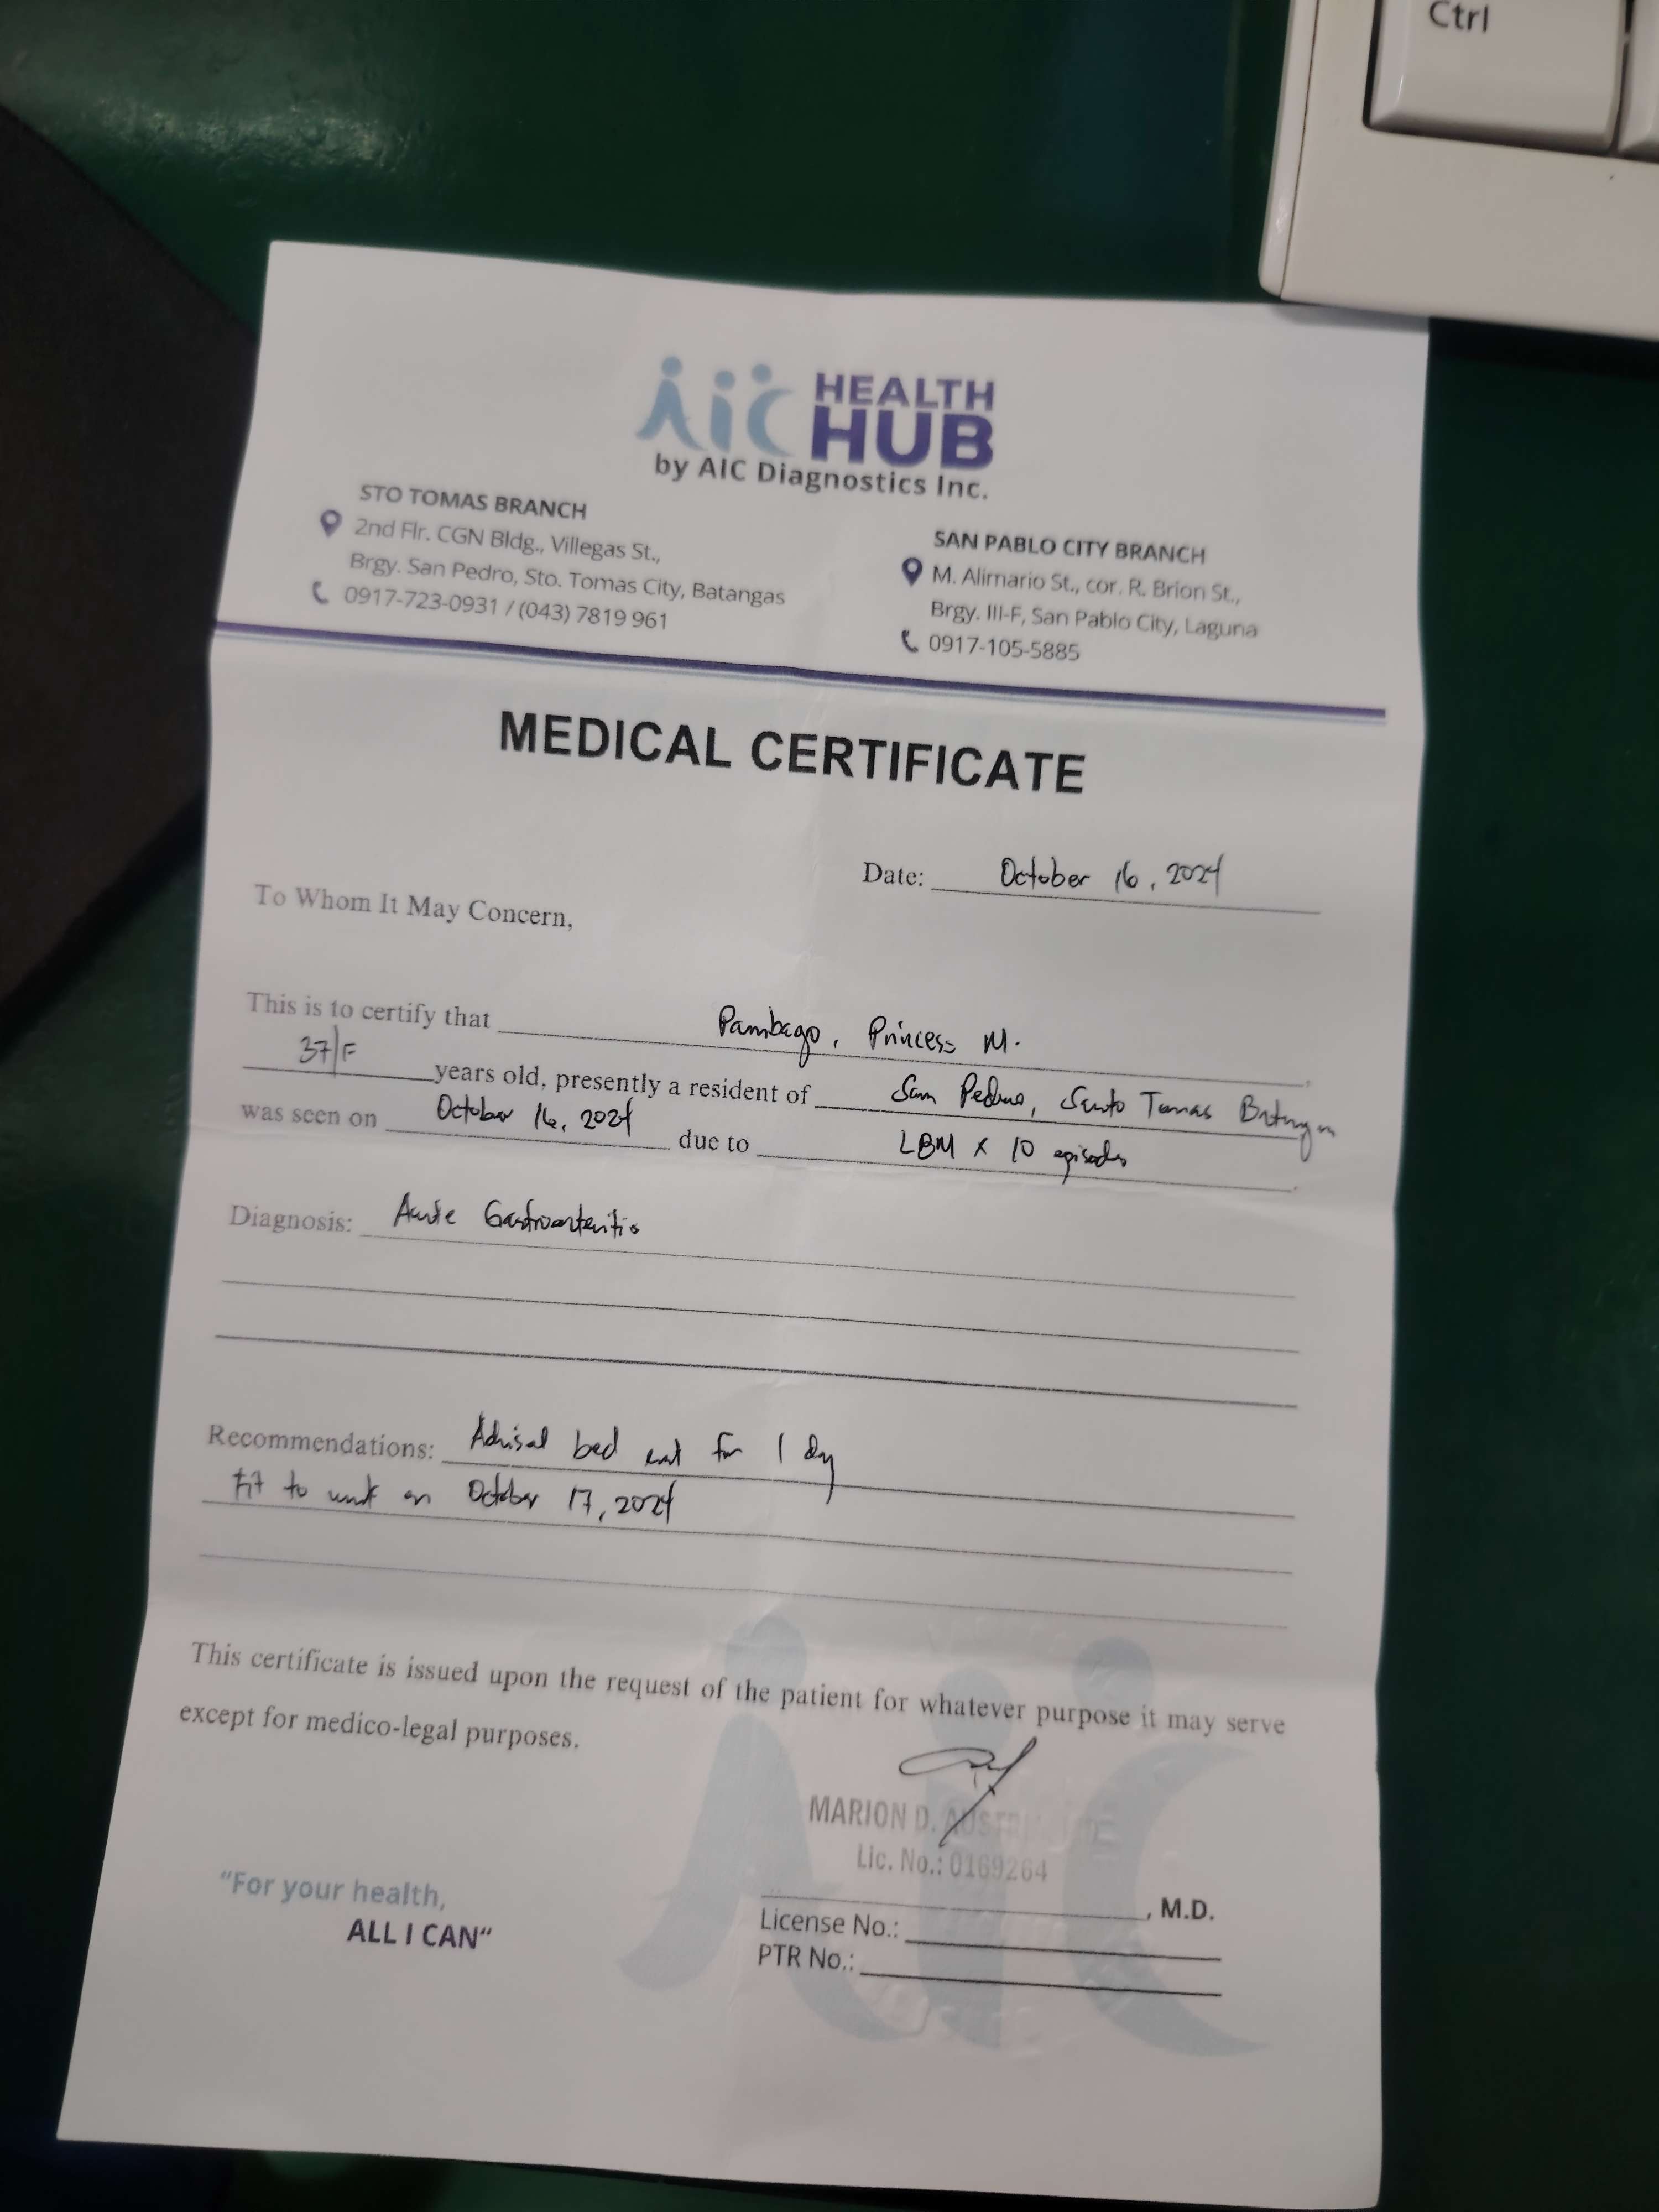 Ctrl
AiC HEALTH HUB
by AIC Diagnostics Inc.
STO TOMAS BRANCH
2nd Flr. CGN Bldg., Villegas St.,
Brgy. San Pedro, Sto. Tomas City, Batangas
0917-723-0931 / (043) 7819 961
SAN PABLO CITY BRANCH
M. Alimario St., cor. R. Brion St.,
Brgy. III-F, San Pablo City, Laguna
0917-105-5885
MEDICAL CERTIFICATE
Date: October 16, 2024
To Whom It May Concern,
This is to certify that Pambago, Princess M.,
37/F years old, presently a resident of San Pedro, Santo Tomas Batangas
was seen on October 16, 2024 due to LBM x 10 episodes.
Diagnosis: Acute Gastroenteritis
Recommendations: Advised bed rest for 1 day
Fit to work on October 17, 2024
This certificate is issued upon the request of the patient for whatever purpose it may serve
except for medico-legal purposes.
MARION D.
Lic. No.: 0169264
, M.D.
License No.:
PTR No.:
"For your health,
ALL I CAN"
AiC